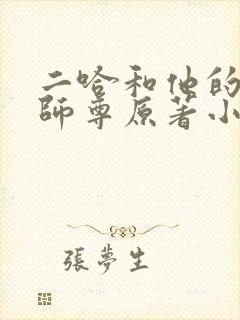 二哈和他的
師尊原著小
張夢生